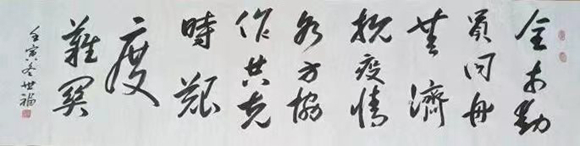 全市動
員同舟
共濟
抗疫情
各方協
作共克
時艱
度
難關
壬寅冬世福